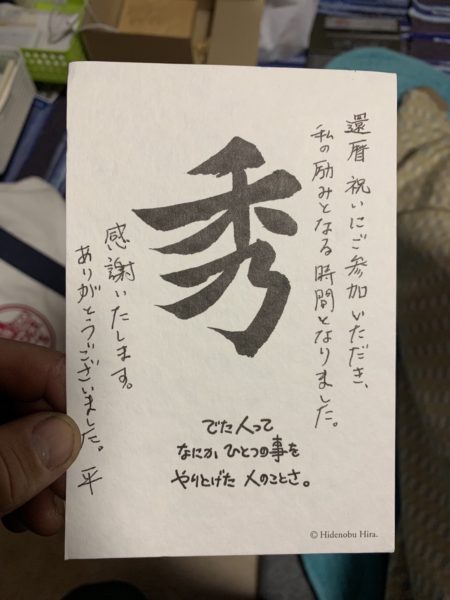 還暦祝いにご参加いただき、
私の励みとなる時間となりました。
秀
感謝いたします。
ありがとうございました。平
でた人って
なにか、ひとつの事を
やりとげた 人のことさ。
© Hidenobu Hira.